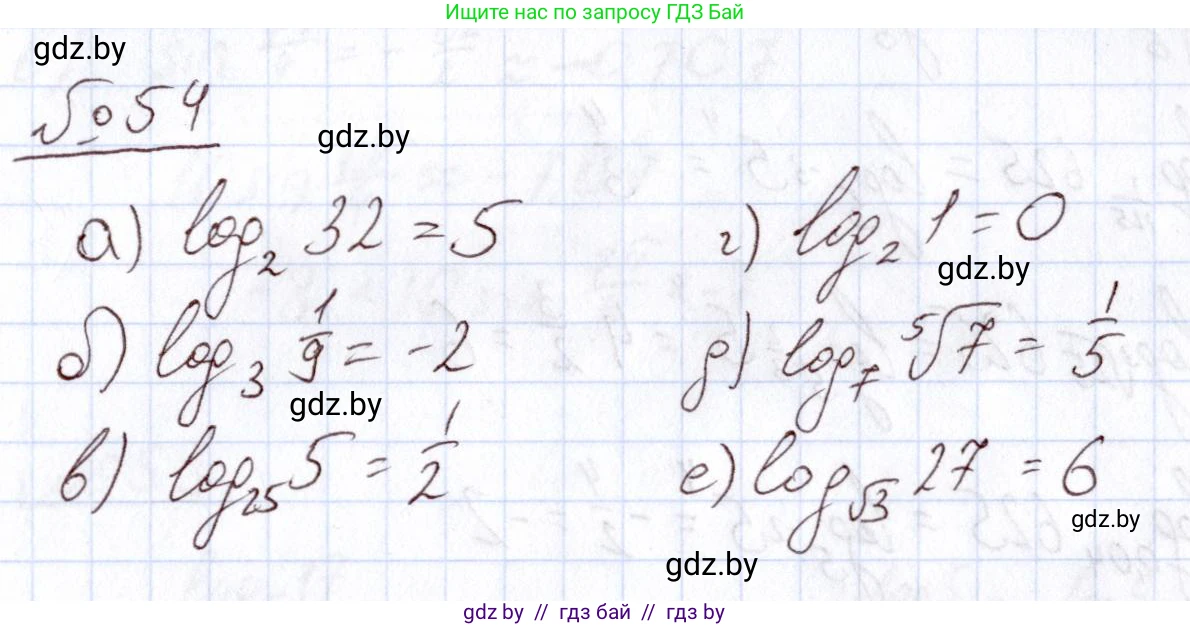 Ищите нас по запросу ГДЗ Бай
gdz.by
№ 54
gdz.by
а) log₂ 32 = 5
г) log₂ 1 = 0
gdz.by
б) log₃ 1/9 = -2
д) log₇ ⁵√7 = 1/5
gdz.by
в) log₂₅ 5 = 1/2
е) log_√3 27 = 6
gdz.by
gdz.by
gdz.by // гдз бай // гдз by